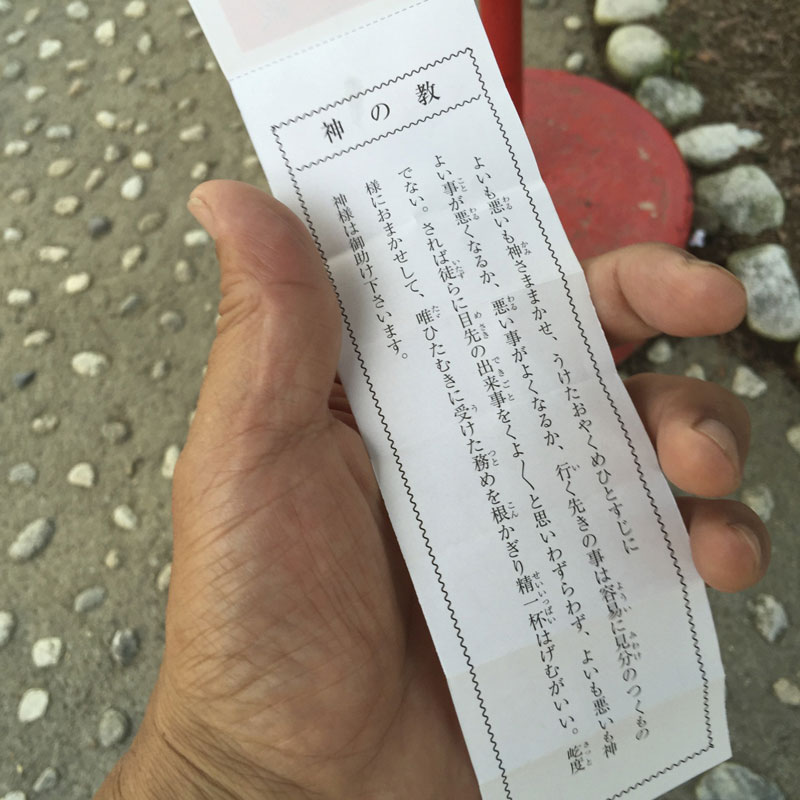 神の教
よいも悪いも神さままかせ、うけたおやくめひとすじに
よい事が悪くなるか、悪い事がよくなるか、行く先きの事は容易に見分のつくもの
でない。されば徒らに目先の出来事をくよ〱と思いわずらわず、よいも悪いも神
様におまかせして、唯ひたむきに受けた務めを根かぎり精一杯はげむがいい。屹度
神様は御助け下さいます。